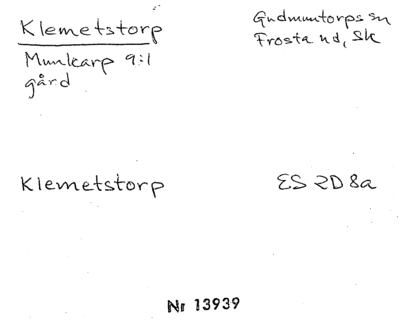 Klemetstorp
Gudmuntorps sn
Frosta hd, Sk
Munkarp 9:1
gård
Klemetstorp
ES 2D 8a
Nr 13939